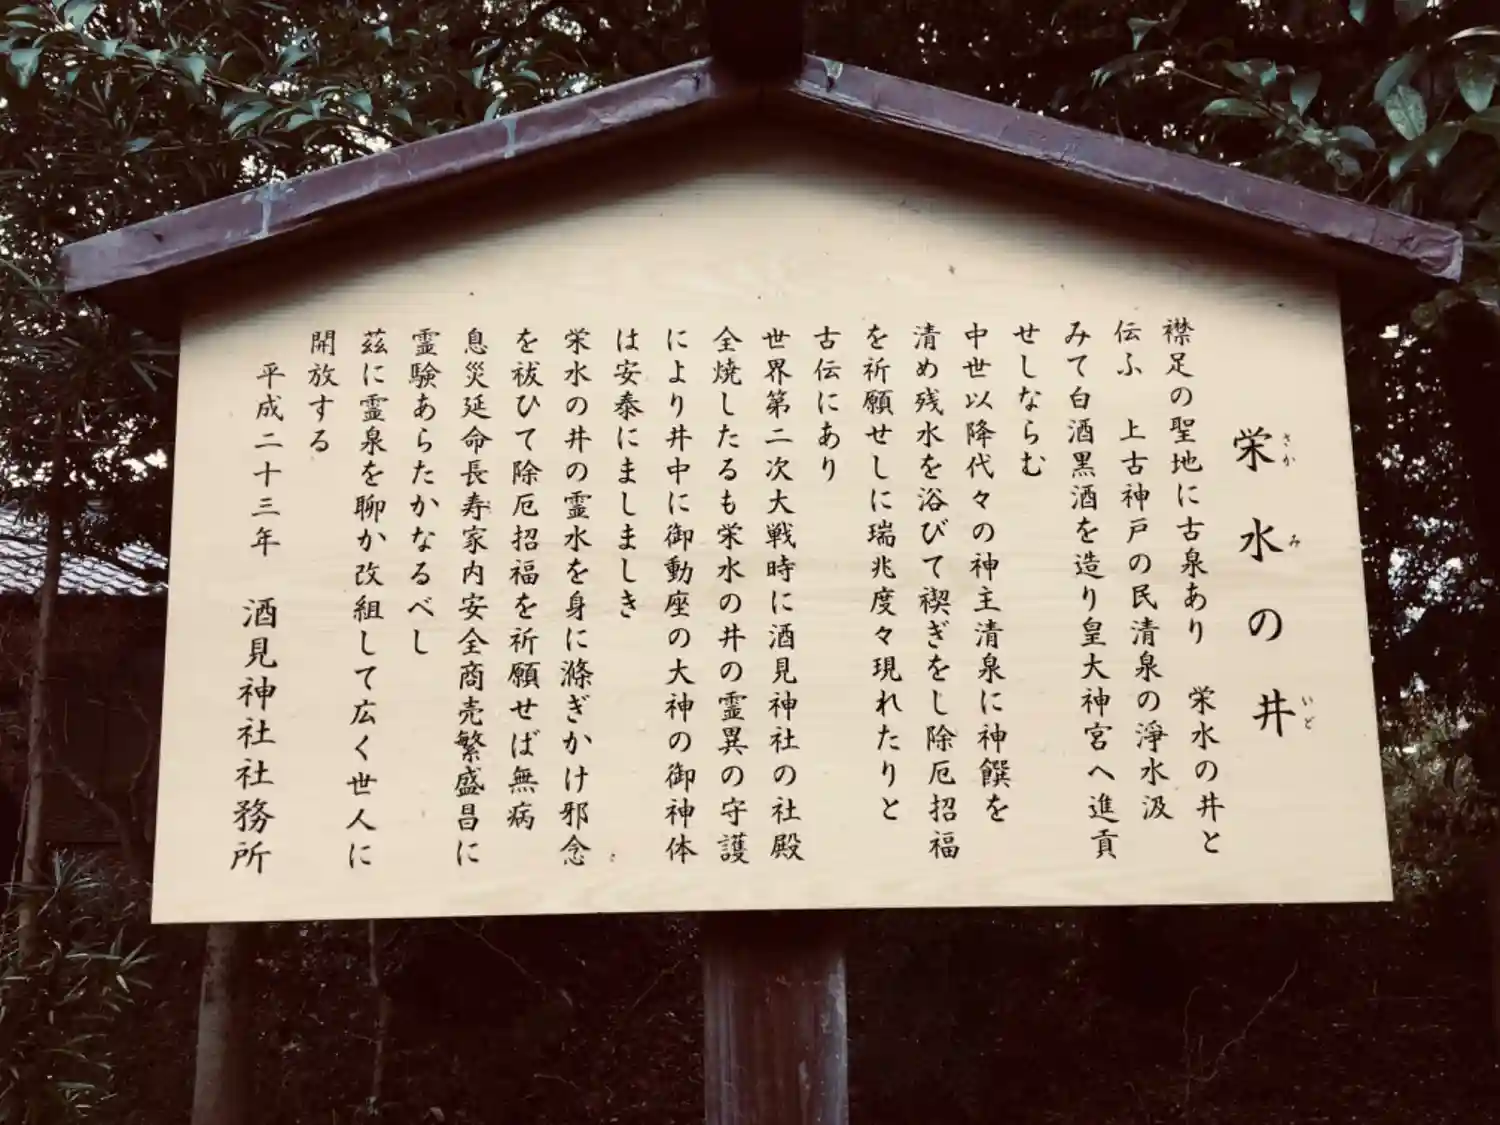 栄水の井
さかみいど
襟足の聖地に古泉あり　栄水の井と
伝ふ　上古神戸の民清泉の淨水汲
みて白酒黒酒を造り皇大神宮へ進貢
せしならむ
中世以降代々の神主清泉に神饌を
清め残水を浴びて禊ぎをし除厄招福
を祈願せしに瑞兆度々現れたりと
古伝にあり
世界第二次大戦時に酒見神社の社殿
全焼したるも栄水の井の霊異の守護
により井中に御動座の大神の御神体
は安泰にましましき
栄水の井の霊水を身に滌ぎかけ邪念
を祓ひて除厄招福を祈願せば無病
息災延命長寿家内安全商売繁盛昌に
霊験あらたかなるべし
茲に霊泉を聊か改組して広く世人に
開放する
平成二十三年　酒見神社社務所